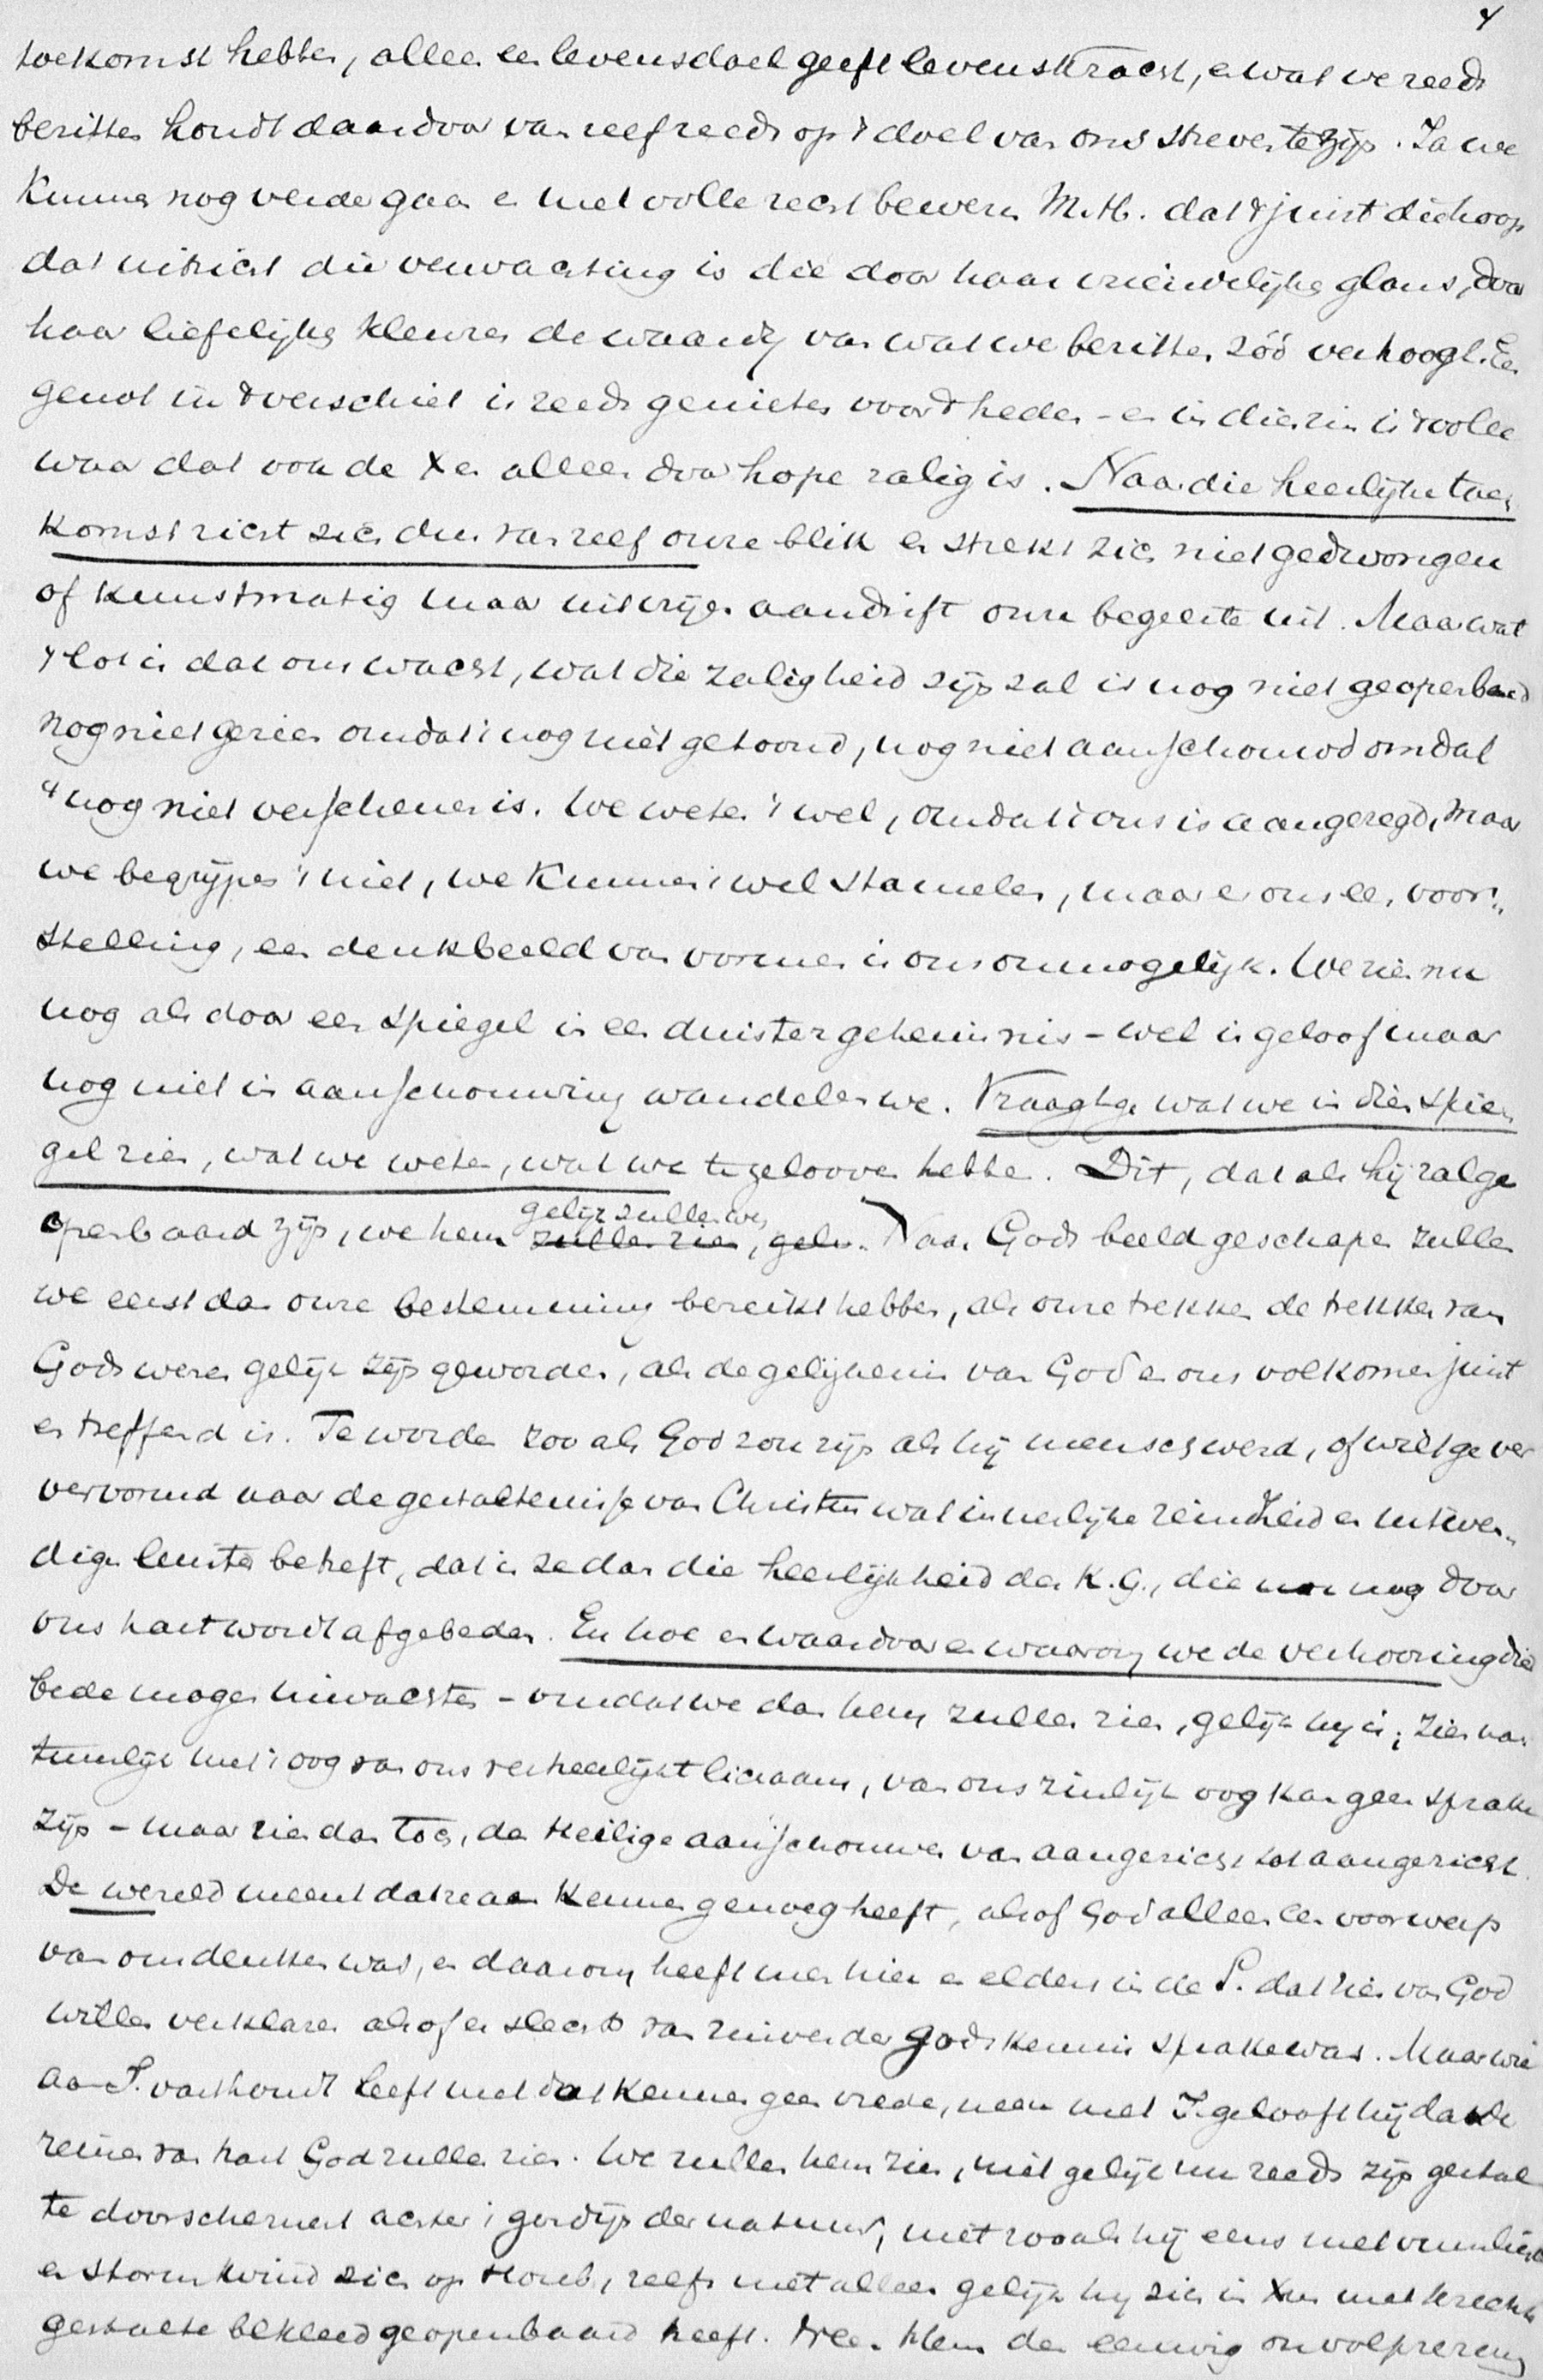 4
toekomst hebben, alleen een levensdoel geeft levenskracht, en wat we reeds
bezitten houdt daardoor van zelf reeds op 't doel van ons streven te zijn. Ja we
kunnen nog verder gaan en met volle recht beweren M.H. dat 't juist die hoop
dat uitzicht die verwachting is die door haar vriendelijke glans, door
haar liefelijke kleuren de waardij van wat we bezitten zóó verhoogt. Een
genot in 't verschiet is reeds genieten voor 't heden - en in dien zin is 't volle
waar dat ook de Xen alleen door hope zalig is. Naar die heerlijke toe
komst richt zich dus van zelf onze blik en strekt zich niet gedwongen
of kunstmatig maar uit vrijen aandrift onze begeerte uit. Maar wat
't lot is dat ons wacht, wat die zaligheid zijn zal is nog niet geopenbaard
nog niet gezien omdat 't nog niet getoond, nog niet aanschouwd omdat
't nog niet verschenen is. We weten 't wel, omdat 't ons is aangezegd, maar
we begrijpen 't niet, we kunnen 't wel stamelen, maar er ons een voor-
stelling, een denkbeeld van vormen is ons onmogelijk. We zien nu
nog als door een spiegel in een duister geheimnis - wel in geloof maar
nog niet in aanschouwing wandelen we. Vraagt ge wat we in dien spie
gel zien, wat we weten, wat we te gelooven hebben. Dit, dat als hij zal ge
openbaard zijn, we hem zullen zien, gelijk zullen we. Naar Gods beeld geschapen zullen
we eerst dan onze bestemming bereikt hebben, als onze trekken de trekken van
Gods wezen gelijk zijn geworden, als de gelijkenis van God en ons volkomen juist
en treffend is. Te worden zoo als God zou zijn als hij mensch werd, of wilt ge ver
vervormd naar de gestaltenisse van Christus wat innerlijke reinheid en uitwen-
digen luister betreft, dat is ze dan die heerlijkheid der K.G., die nu nog door
ons hart wordt afgebeden. En hoe en waardoor en waarom we de verhooring dier
bede mogen inwachten - omdat we dan hem zullen zien, gelijk hij is; zien na
tuurlijk met 't oog van ons verheerlijkt lichaam, van ons zinlijk oog kan geen sprake
zijn - maar zien dan toch, de heilige aanschouwen van aangezicht tot aangezicht.
De wereld meent dat ze aan kennen genoeg heeft, alsof God alleen een voorwerp
van ons denken was, en daarom heeft men hier en elders in de S. dat zien van God
willen verklaren alsof er slechts van zuiverder godskennis sprake was. Maar wie
aan S. vasthoudt heeft met dat kennen geen vrede, neen met J. gelooft hij dat de
reinen van hart God zullen zien. We zullen hem zien, niet gelijk nu reeds zijn gestal
te doorschemert achter 't gordijn der natuur, niet zooals hij eens met vuurlicht
en stormwind zich op Horeb, zelfs niet alleen gelijk hij zich in Xus met knechts
gestalte bekleed geopenbaard heeft. Neen Hem den eeuwig onvolprezen